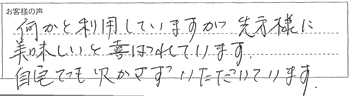 お客様の声
何かと利用していますが 先方様に
美味しいと喜ばれています。
自宅でも欠かさずいただいています。